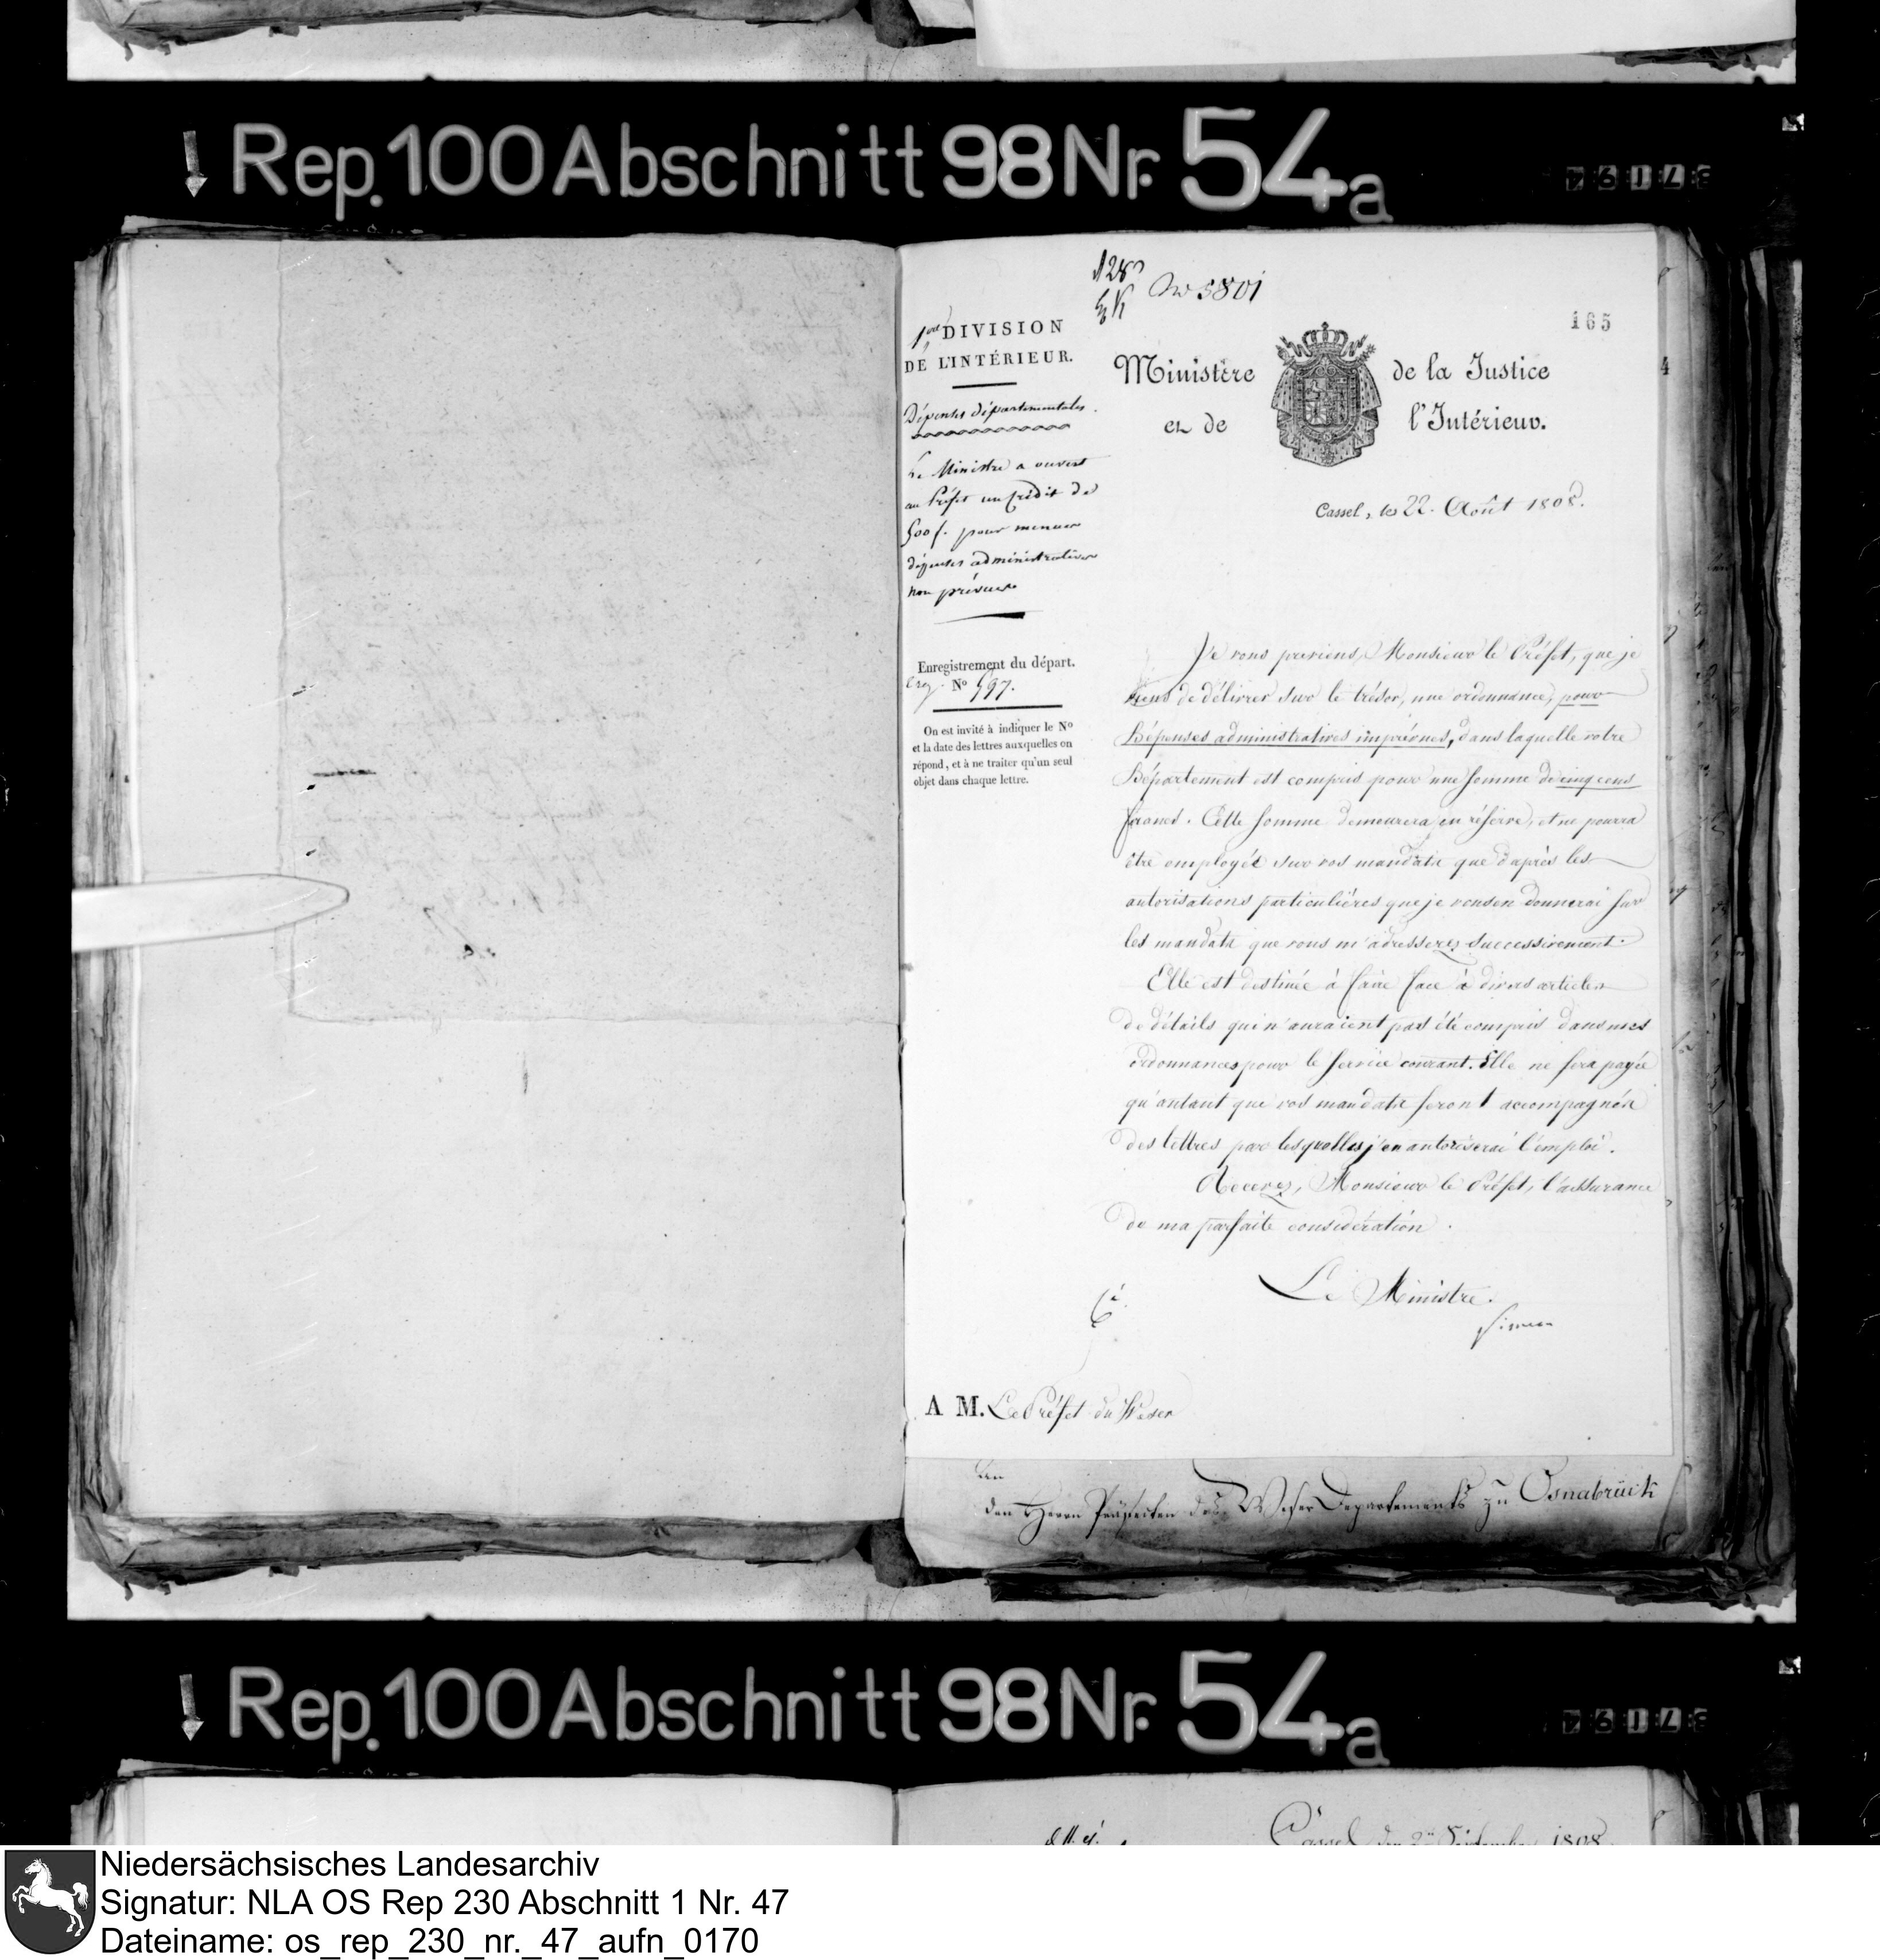 Rep. 100 Abschnitt 98 Nr. 54a
128
5801
165
1ere DIVISION
DE L'INTÉRIEUR.
Dépenses départementales.
Le Ministre a ouvert
au Préfet un Crédit de
500 f. pour menues
dépenses administratives
non prévues
Enregistrement du départ.
No 597.
On est invité à indiquer le No
et la date des lettres auxquelles on
répond, et à ne traiter qu'un seul
objet dans chaque lettre.
Ministère de la Justice
et de l'Intérieur.
Cassel, le 22. Août 1808.
Je vous préviens, Monsieur le Préfet, que je
viens de délivrer sur le trésor, une ordonnance, pour
Dépenses administratives imprévues, dans laquelle votre
Département est compris pour une somme de cinq cens
francs. Cette somme demeurera en réserve, et ne pourra
être employée sur vos mandats que d'après les
autorisations particulières que je vous en donnerai sur
les mandats que vous m'adresserez successivement.
Elle est destinée à faire face à divers articles
de détails qui n'auraient pas été compris dans mes
ordonnances pour le service courant. Elle ne sera payée
qu'autant que vos mandats seront accompagnés
des lettres par lesquelles j'en autoriserai l'emploi.
Recevez, Monsieur le Préfet, l'assurance
de ma parfaite considération.
Le Ministre.
Simeon
A M. Le Préfet du Weser
An
den Herrn Präfecten des Weser Departements zu Osnabrück
Rep. 100 Abschnitt 98 Nr. 54a
Cassel den 2ten September 1808
Niedersächsisches Landesarchiv
Signatur: NLA OS Rep 230 Abschnitt 1 Nr. 47
Dateiname: os_rep_230_nr._47_aufn_0170